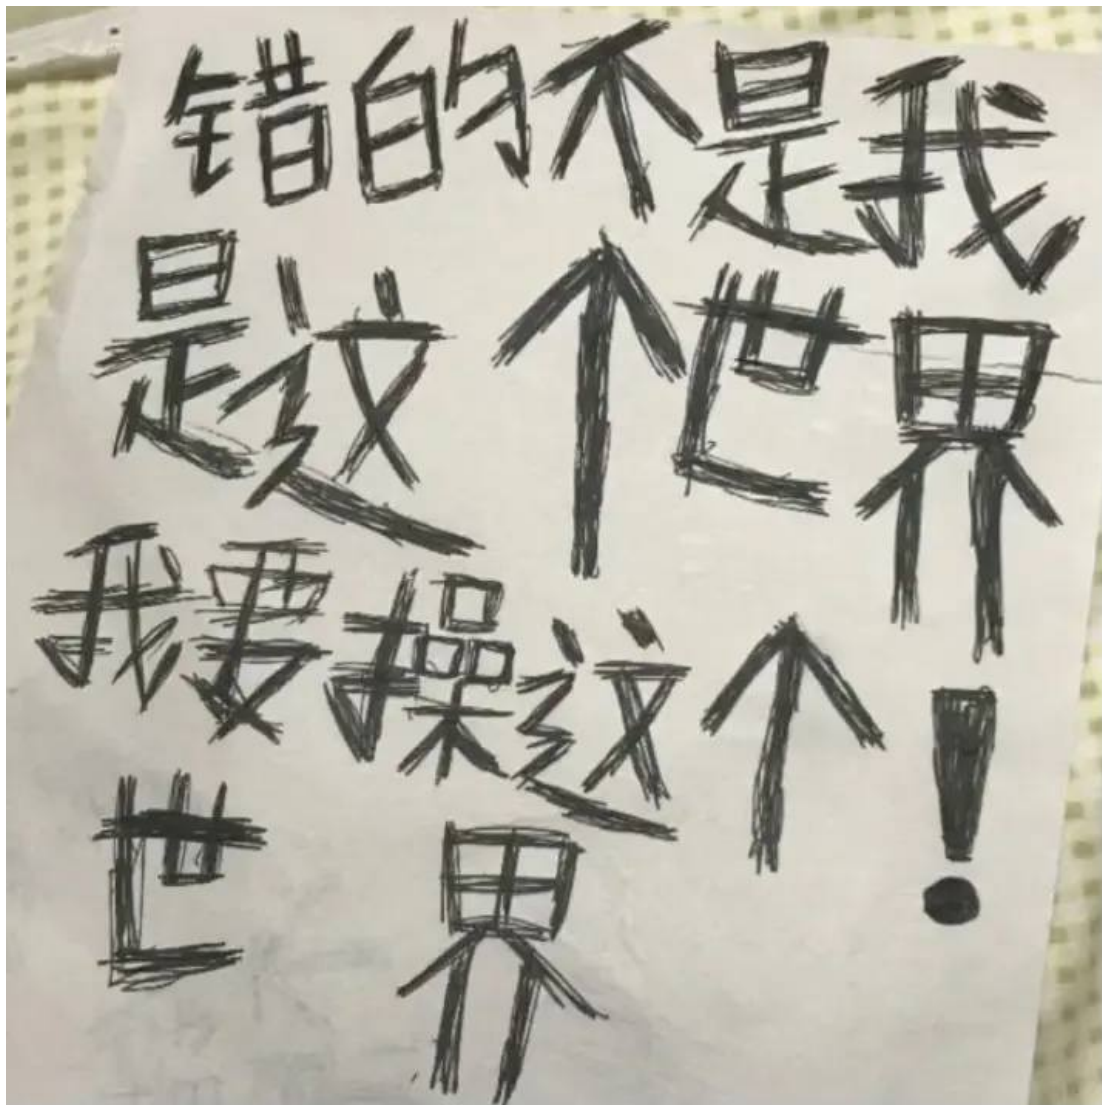 错的不是我
是这个世界
我要操这个！
世界